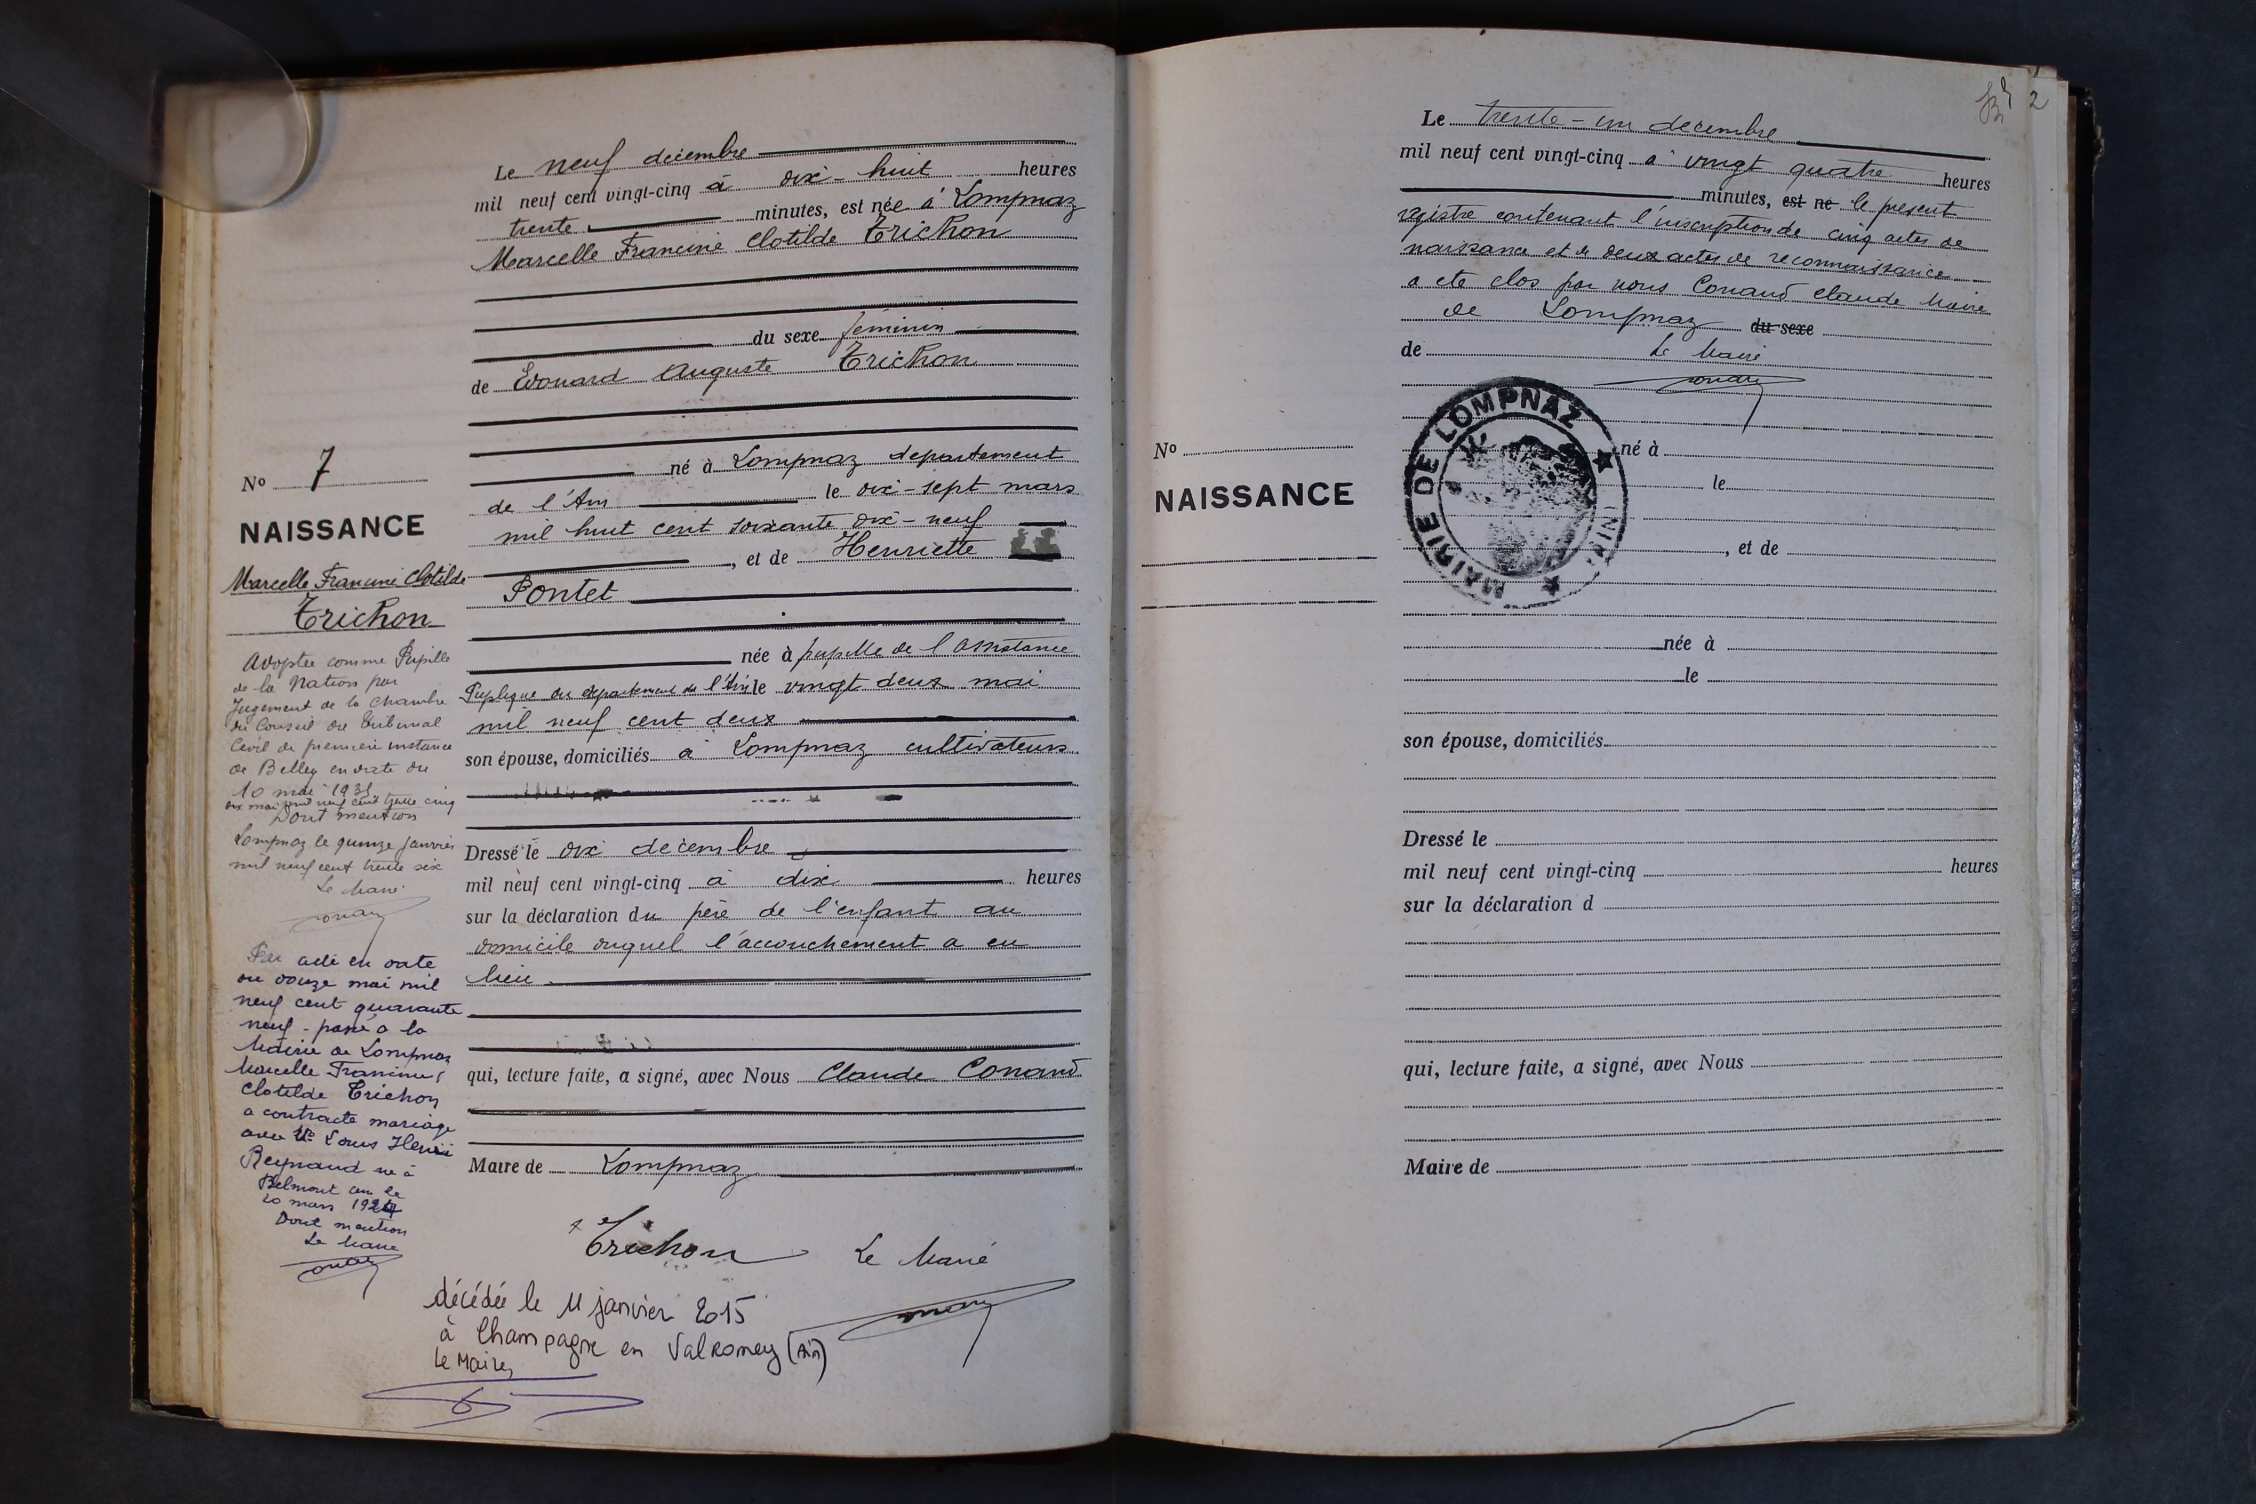 Le neuf décembre
mil neuf cent vingt-cinq à dix-huit heures
trente minutes, est née à Lompnaz
Marcelle Francine Clotilde Trichon
du sexe féminin
de Edouard Auguste Trichon
né à Lompnaz departement
de l'Ain le dix-sept mars
mil huit cent soixante dix-neuf
, et de Henriette
Pontet
née à pupille de l'Assistance
Puplique du departement de l'Ain le vingt deux mai
mil neuf cent deux
son épouse, domiciliés à Lompnaz cultivateurs
Dressé le dix decembre
mil neuf cent vingt-cinq à dix heures
sur la déclaration du père de l'enfant au
domicile duquel l'accouchement a eu
lieu
qui, lecture faite, a signé, avec Nous Claude Conand
Maire de Lompnaz
Trichon Le Maire
décédée le 11 janvier 2015
à Champagne en Valromey (Ain)
Le Maire,
No 7
NAISSANCE
Marcelle Francine Clotilde
Trichon
Adoptée comme Pupille
de la Nation par
Jugement de la Chambre
du Conseil du Tribunal
Civil de première instance
de Belley en date du
10 mai
dix mai mil neuf cent trente cinq
Dont mention
Lompnaz le quinze janvier
mil neuf cent trente six
Le Maire
Par acte en date
du douze mai mil
neuf cent quarante
neuf - passé à la
Mairie de Lompnaz
Marcelle Francine
Clotilde Trichon
a contracté mariage
avec Mr Louis Henri
Reynaud né à
Belmont Ain le
20 mars
Dont mention
Le Maire
2
Le trente-un decembre
mil neuf cent vingt-cinq à vingt quatre heures
minutes, est né le present
registre contenant l'inscription de cinq actes de
naissance et de deux actes de reconnaissance
a ete clos par nous Conand Claude Maire
de Lompnaz du sexe
de Le Maire
MAIRIE DE LOMPNAZ
No
NAISSANCE
né à
le
, et de
née à
le
son épouse, domiciliés
Dressé le
mil neuf cent vingt-cinq heures
sur la déclaration d
qui, lecture faite, a signé, avec Nous
Maire de